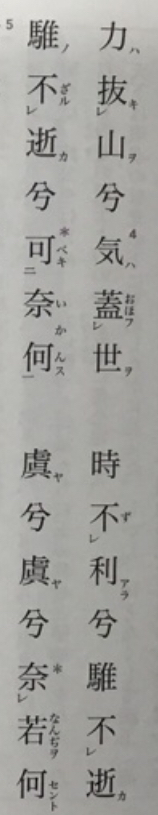 力ハ抜キレ山ヲ兮気4ハ蓋おほフレ世ヲ　時不ずレ利アラ兮騅不レ逝カ
5 騅ノ不ざルレ逝カ兮可*ベキ二奈いか何んス一　虞ヤ兮虞ヤ兮奈*レ若なんぢヲ何セント